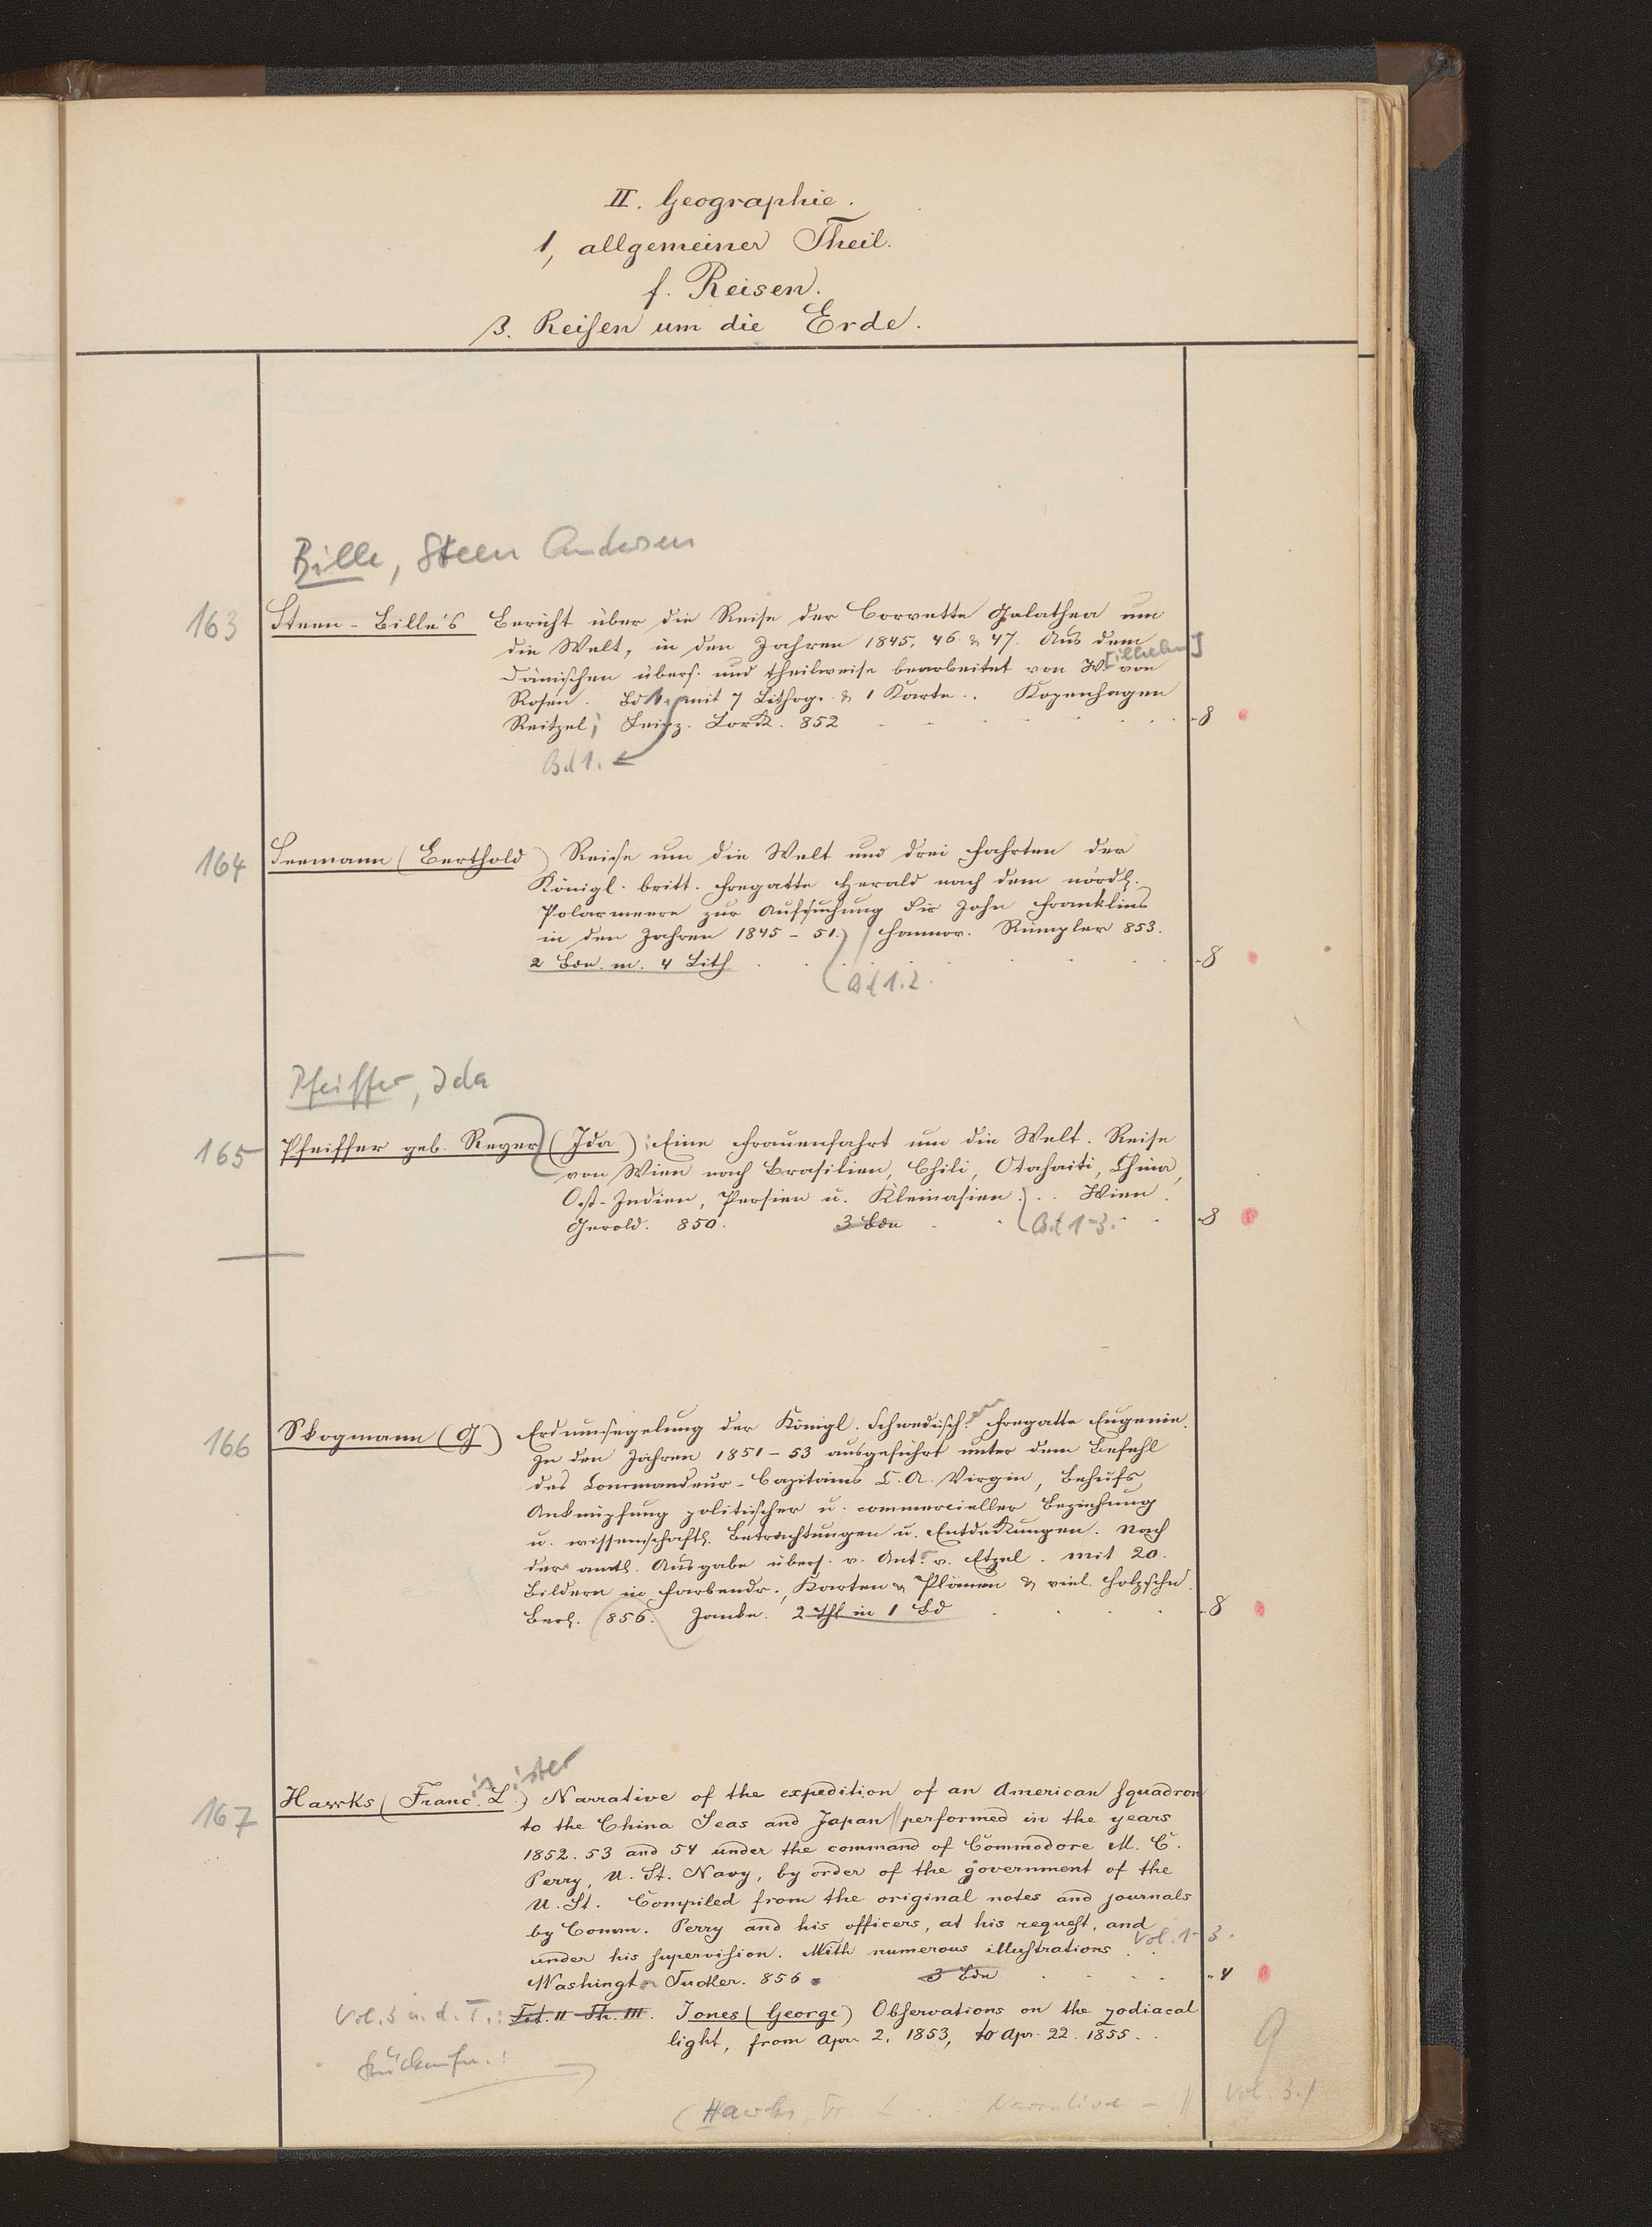 II. Geographie.
1, allgemeiner Theil.
f. Reisen.
β. Reisen um die Erde.
Bille, Steen Andersen
163 Steen-Bille's Bericht über die Reise der Corvette Galathea um
die Welt, in den Jahren 1845, 46 & 47. Aus dem
Dänischen übers. und theilweise bearbeitet von W[ilhelm] von
Rosen. Bd 1. mit 7 Lithogr. & 1 Karte.. Kopenhagen
Reitzel; Leipz. Lork. 852 8
Bd 1.
164 Seemann (Berthold) Reise um die Welt und drei Fahrten der
Königl. britt. Fregatte Herald nach dem nördl.
Polarmeere zur Aufsuchung Sir John Franklins
in den Jahren 1845-51. Hannov. Rümpler 853.
2 Bde. m. 4 Lith 8
Bd 1.2.
Pfeiffer, Ida
165 Pfeiffer geb. Reyer (Ida): Eine Frauenfahrt um die Welt. Reise
von Wien nach Brasilien, Chili, Otahaiti, China,
Ost-Indien, Persien u. Kleinasien... Wien.
Gerold. 850. 3 Bde Bd 1-3. 8
166 Skogmann (G) Erdumsegelung der Königl. Schwedisch. en Fregatte Eugenie.
In den Jahren 1851-53 ausgeführt unter dem Befehl
des Commandeur-Capitains C. A. Virgin, Behufs
Anknüpfung politischer u. commercieller Beziehung
u. wissenschaftl. Betrachtungen u. Entdekungen. Nach
der amtl. Ausgabe übers. v. Ant. v. Etzel. mit 20.
Bildern in Farbendr., Karten & Plänen & viel. Holzschn.
Berl. 856. Janke. 2 Thl in 1 Bd 8
is ister
167 Hawks (Franc. L.) Narrative of the expedition of an American squadron
to the China Seas and Japan // performed in the years
1852. 53 and 54 under the command of Commodore M. C.
Perry, U. St. Navy, by order of the government of the
U. St. Compiled from the original notes and journals
by Comm. Perry and his officers, at his request, and
under his supervision. With numerous illustrations Vol. 1-3.
Washingt Tucker. 856 3 Bde 4
Vol. 3 u. d. T.: Tit. II Th. III. Jones (George) Observations on the zodiacal
light, from Apr. 2. 1853, to Apr. 22. 1855..
9
(Hawks, Fr L ... Narrative - // Vol. 3.)